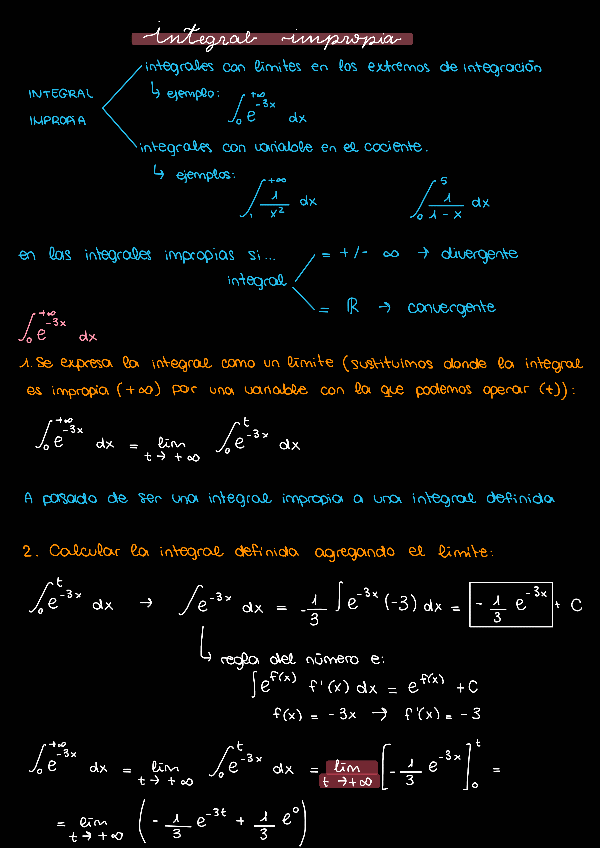 integral impropia
integrales con límites en los extremos de integración
INTEGRAL IMPROPIA
↳ ejemplo: ∫₀^{+∞} e^{-3x} dx
integrales con variable en el cociente.
↳ ejemplos: ∫₁^{+∞} 1/x² dx ∫₀^5 1/(1-x) dx
en las integrales impropias si...
integral
= +/- ∞ → divergente
= ℝ → convergente
∫₀^{+∞} e^{-3x} dx
1. Se expresa la integral como un límite (sustituimos donde la integral
es impropia (+∞) por una variable con la que podemos operar (t)):
∫₀^{+∞} e^{-3x} dx = lim_{t→+∞} ∫₀^t e^{-3x} dx
A pasado de ser una integral impropia a una integral definida
2. Calcular la integral definida agregando el límite:
∫₀^t e^{-3x} dx → ∫ e^{-3x} dx = -1/3 ∫ e^{-3x} (-3) dx = -1/3 e^{-3x} + C
↳ regla del número e:
∫ e^{f(x)} f'(x) dx = e^{f(x)} + C
f(x) = -3x → f'(x) = -3
∫₀^{+∞} e^{-3x} dx = lim_{t→+∞} ∫₀^t e^{-3x} dx = lim_{t→+∞} [-1/3 e^{-3x}]₀^t =
= lim_{t→+∞} (-1/3 e^{-3t} + 1/3 e^0)